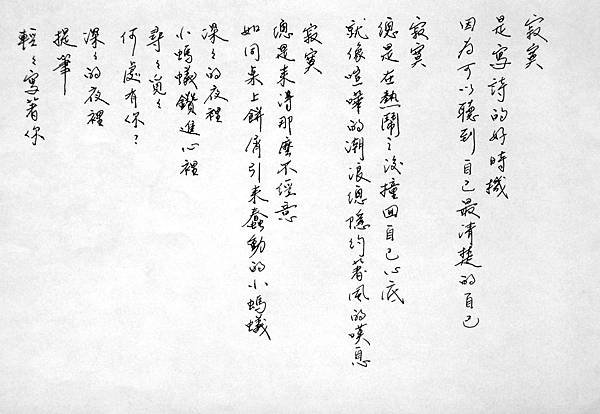 寂寞
是寫詩的好時機
因為可以聽到自己最清楚的自己
寂寞
總是在熱鬧之後撞回自己心底
就像喧嘩的潮浪總隱約著風的嘆息
寂寞
總是來得那麼不經意
如同桌上餅屑引來蠢動的小螞蟻
深々的夜裡
小螞蟻鑽進心裡
尋々覓々
何處有你？
深々的夜裡
提筆
輕々寫著你